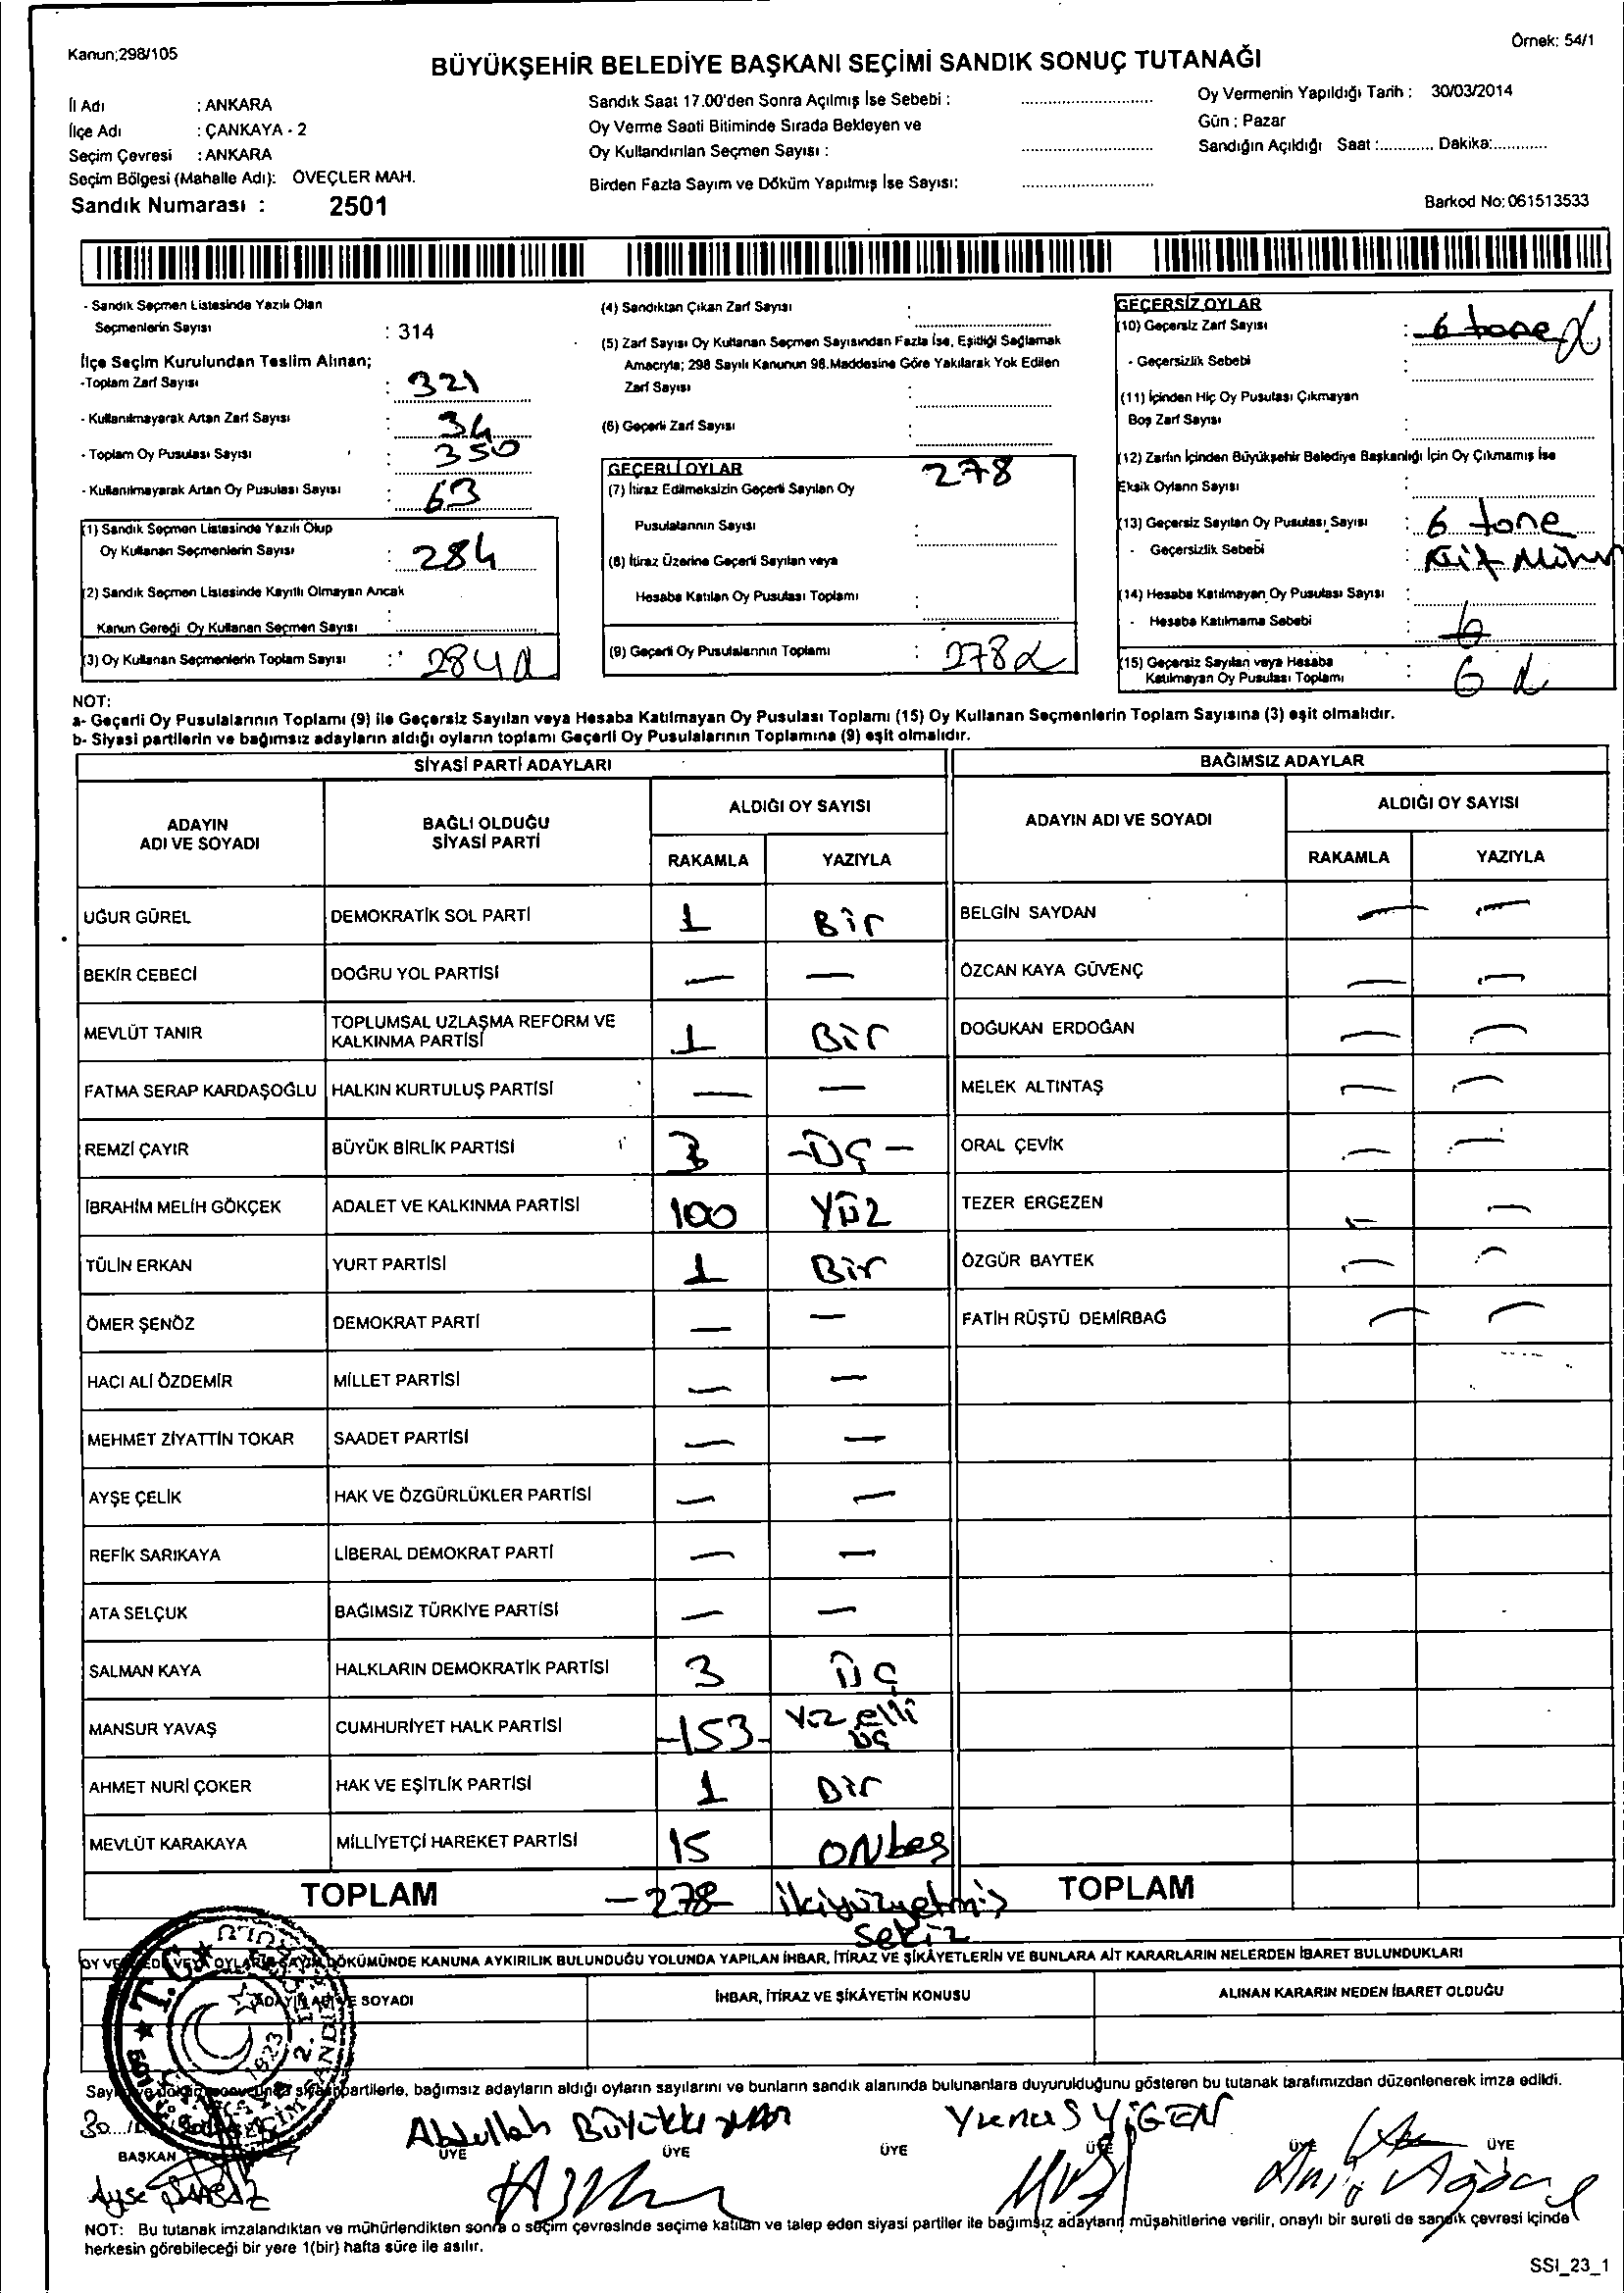 Kanun;298/105
Örnek: 54/1
BÜYÜKŞEHİR BELEDİYE BAŞKANI SEÇİMİ SANDIK SONUÇ TUTANAĞI
İl Adı : ANKARA
İlçe Adı : ÇANKAYA - 2
Seçim Çevresi : ANKARA
Seçim Bölgesi (Mahalle Adı): ÖVEÇLER MAH.
Sandık Numarası : 2501
Sandık Saat 17.00'den Sonra Açılmış İse Sebebi :
Oy Verme Saati Bitiminde Sırada Bekleyen ve
Oy Kullandırılan Seçmen Sayısı :
Birden Fazla Sayım ve Döküm Yapılmış İse Sayısı:
Oy Vermenin Yapıldığı Tarih : 30/03/2014
Gün : Pazar
Sandığın Açıldığı Saat :............ Dakika:............
Barkod No:061513533
- Sandık Seçmen Listesinde Yazılı Olan
Seçmenlerin Sayısı : 314
İlçe Seçim Kurulundan Teslim Alınan;
-Toplam Zarf Sayısı : 321
- Kullanılmayarak Artan Zarf Sayısı : 34
- Toplam Oy Pusulası Sayısı : 350
- Kullanılmayarak Artan Oy Pusulası Sayısı : 63
(1) Sandık Seçmen Listesinde Yazılı Olup
Oy Kullanan Seçmenlerin Sayısı : 284
(2) Sandık Seçmen Listesinde Kayıtlı Olmayan Ancak
Kanun Gereği Oy Kullanan Seçmen Sayısı :
(3) Oy Kullanan Seçmenlerin Toplam Sayısı : 284
(4) Sandıktan Çıkan Zarf Sayısı :
(5) Zarf Sayısı Oy Kullanan Seçmen Sayısından Fazla İse, Eşitliği Sağlamak
Amacıyla; 298 Sayılı Kanunun 98.Maddesine Göre Yakılarak Yok Edilen
Zarf Sayısı :
(6) Geçerli Zarf Sayısı :
GEÇERLİ OYLAR
278
(7) İtiraz Edilmeksizin Geçerli Sayılan Oy
Pusulalarının Sayısı :
(8) İtiraz Üzerine Geçerli Sayılan veya
Hesaba Katılan Oy Pusulası Toplamı :
(9) Geçerli Oy Pusulalarının Toplamı : 278
GEÇERSİZ OYLAR
(10) Geçersiz Zarf Sayısı : 6 tane
- Geçersizlik Sebebi :
(11) İçinden Hiç Oy Pusulası Çıkmayan
Boş Zarf Sayısı :
(12) Zarfın İçinden Büyükşehir Belediye Başkanlığı İçin Oy Çıkmamış İse
Eksik Oyların Sayısı :
(13) Geçersiz Sayılan Oy Pusulası Sayısı : 6 tane
- Geçersizlik Sebebi :
(14) Hesaba Katılmayan Oy Pusulası Sayısı :
- Hesaba Katılmama Sebebi : 6
(15) Geçersiz Sayılan veya Hesaba
Katılmayan Oy Pusulası Toplamı : 6
NOT:
a- Geçerli Oy Pusulalarının Toplamı (9) ile Geçersiz Sayılan veya Hesaba Katılmayan Oy Pusulası Toplamı (15) Oy Kullanan Seçmenlerin Toplam Sayısına (3) eşit olmalıdır.
b- Siyasi partilerin ve bağımsız adayların aldığı oyların toplamı Geçerli Oy Pusulalarının Toplamına (9) eşit olmalıdır.
SİYASİ PARTİ ADAYLARI
BAĞIMSIZ ADAYLAR
ADAYIN ADI VE SOYADI
BAĞLI OLDUĞU SİYASİ PARTİ
ALDIĞI OY SAYISI
RAKAMLA YAZIYLA
ADAYIN ADI VE SOYADI
ALDIĞI OY SAYISI
RAKAMLA YAZIYLA
UĞUR GÜREL DEMOKRATİK SOL PARTİ 1 Bir BELGİN SAYDAN — —
BEKİR CEBECİ DOĞRU YOL PARTİSİ — — ÖZCAN KAYA GÜVENÇ — —
MEVLÜT TANIR TOPLUMSAL UZLAŞMA REFORM VE KALKINMA PARTİSİ 1 Bir DOĞUKAN ERDOĞAN — —
FATMA SERAP KARDAŞOĞLU HALKIN KURTULUŞ PARTİSİ — — MELEK ALTINTAŞ — —
REMZİ ÇAYIR BÜYÜK BİRLİK PARTİSİ 3 -ÜÇ- ORAL ÇEVİK — —
İBRAHİM MELİH GÖKÇEK ADALET VE KALKINMA PARTİSİ 100 YÜZ TEZER ERGEZEN — —
TÜLİN ERKAN YURT PARTİSİ 1 Bir ÖZGÜR BAYTEK — —
ÖMER ŞENÖZ DEMOKRAT PARTİ — — FATİH RÜŞTÜ DEMİRBAĞ — —
HACI ALİ ÖZDEMİR MİLLET PARTİSİ — —
MEHMET ZİYATTİN TOKAR SAADET PARTİSİ — —
AYŞE ÇELİK HAK VE ÖZGÜRLÜKLER PARTİSİ — —
REFİK SARIKAYA LİBERAL DEMOKRAT PARTİ — —
ATA SELÇUK BAĞIMSIZ TÜRKİYE PARTİSİ — —
SALMAN KAYA HALKLARIN DEMOKRATİK PARTİSİ 3 ÜÇ
MANSUR YAVAŞ CUMHURİYET HALK PARTİSİ -153- Yüz elli üç
AHMET NURİ ÇOKER HAK VE EŞİTLİK PARTİSİ 1 Bir
MEVLÜT KARAKAYA MİLLİYETÇİ HAREKET PARTİSİ 15 ONbeş
TOPLAM -278- ikiyüzyetmiş sekiz TOPLAM
DÖKÜMÜNDE KANUNA AYKIRILIK BULUNDUĞU YOLUNDA YAPILAN İHBAR, İTİRAZ VE ŞİKÂYETLERİN VE BUNLARA AİT KARARLARIN NELERDEN İBARET BULUNDUKLARI
ADAYIN ADI VE SOYADI
İHBAR, İTİRAZ VE ŞİKÂYETİN KONUSU
ALINAN KARARIN NEDEN İBARET OLDUĞU
T.C.
1823
partilerle, bağımsız adayların aldığı oyların sayılarını ve bunların sandık alanında bulunanlara duyurulduğunu gösteren bu tutanak tarafımızdan düzenlenerek imza edildi.
30
Abdullah Yunus YİĞEN
BAŞKAN ÜYE ÜYE ÜYE ÜYE ÜYE ÜYE
Ayşe
NOT: Bu tutanak imzalandıktan ve mühürlendikten sonra o seçim çevresinde seçime katılan ve talep eden siyasi partiler ile bağımsız adayların müşahitlerine verilir, onaylı bir sureti de sandık çevresi içinde
herkesin görebileceği bir yere 1(bir) hafta süre ile asılır.
SSI_23_1